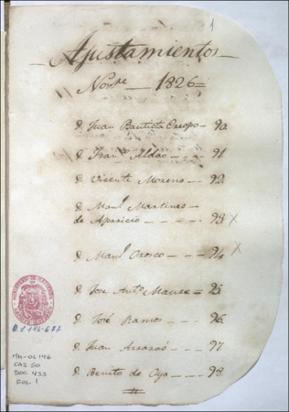 1
Ajustamientos
Nov.re 1826
D. Juan Bautista Crespo - 90
D. Fran.co Aldao - - 91
D. Vicente Moreno - 92
D. Man.l Martinez
de Aparicio - - - - 93 X
D. Man.l Orosco - - 94 X
D. Jose Ant.o - 95
D. José Ramos - - 96
D. Juan - - 97
D. Benito de - - 98
MH-OL 146
CAJ. 50
DOC. 433
FOL. 1